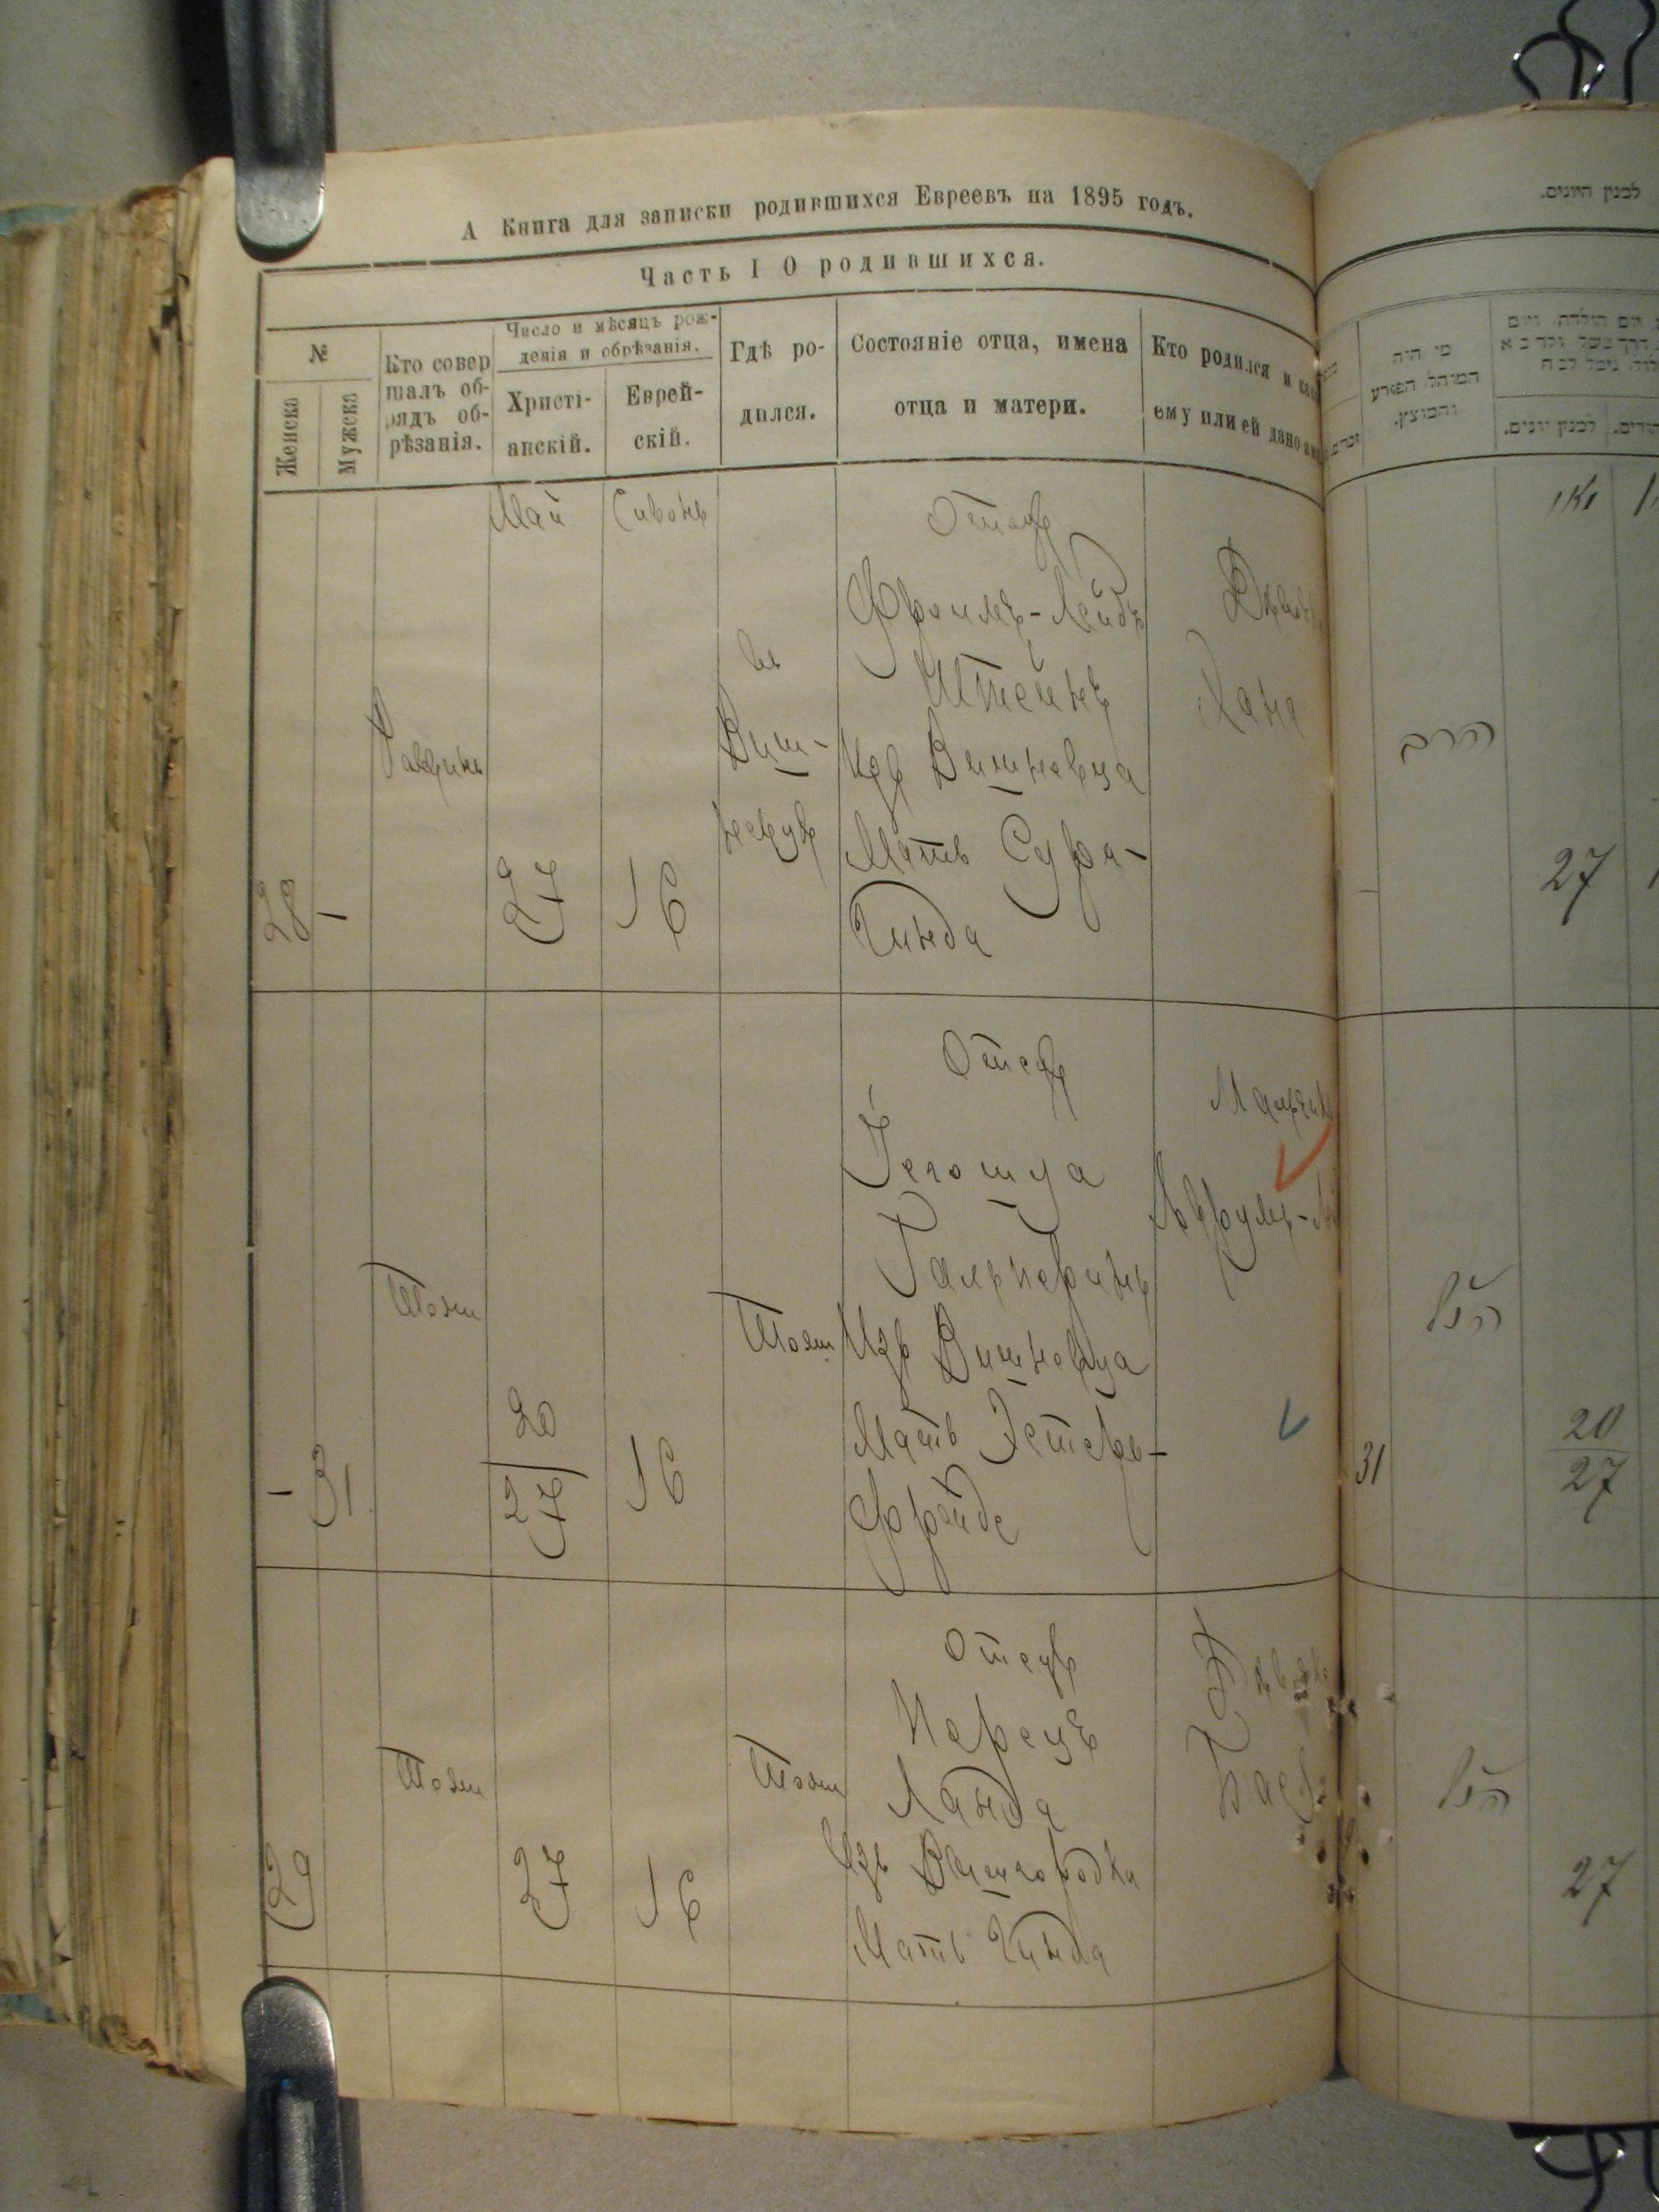 А Книга для записки родившихся Евреевъ на 1895 годъ.
Часть I О родившихся.
№
Женска
Мужска
Кто совер
шалъ об-
рядъ об-
рѣзанія.
Число и мѣсяцъ рож-
денія и обрѣзанія.
Христі-
анскій.
Еврей-
скій.
Гдѣ ро-
дился.
Состояніе отца, имена
отца и матери.
Кто родился и
ему или ей дано
Май
Сивонъ
28
-
Раввинъ
27
16
въ
Виш-
невцѣ
Отецъ
Фроимъ-Лейбъ
Штейнъ
Изъ Вишневца
Мать Сура-
Гинда
Хана
-
31
Тоже
20
27
16
Тоже
Отецъ
Іегошуа
Гальперинъ
Изъ Вишневца
Мать Эстеръ-
Фрейде
Мальчикъ
Аврумъ-
29
Тоже
27
16
Тоже
Отецъ
Перецъ
Ланда
Изъ Вышгородка
Мать Гинда
לבנין היונים.
מי היה
המוהל הפורע
והמוצץ.
הרב
27
31
הנ"ל
20
27
הנ"ל
27